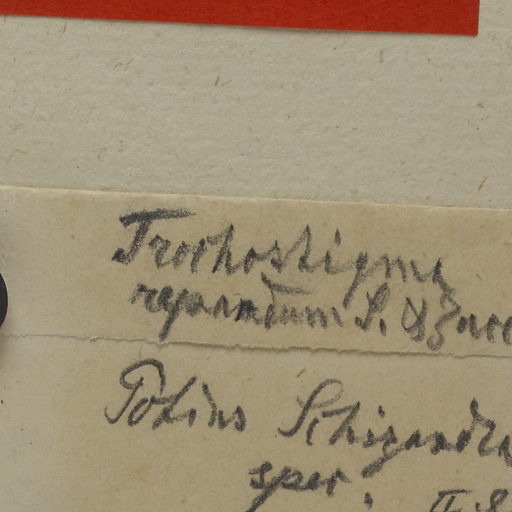 Trochostigma
repandum S. & Zucc
Potius Schizandra
spec.